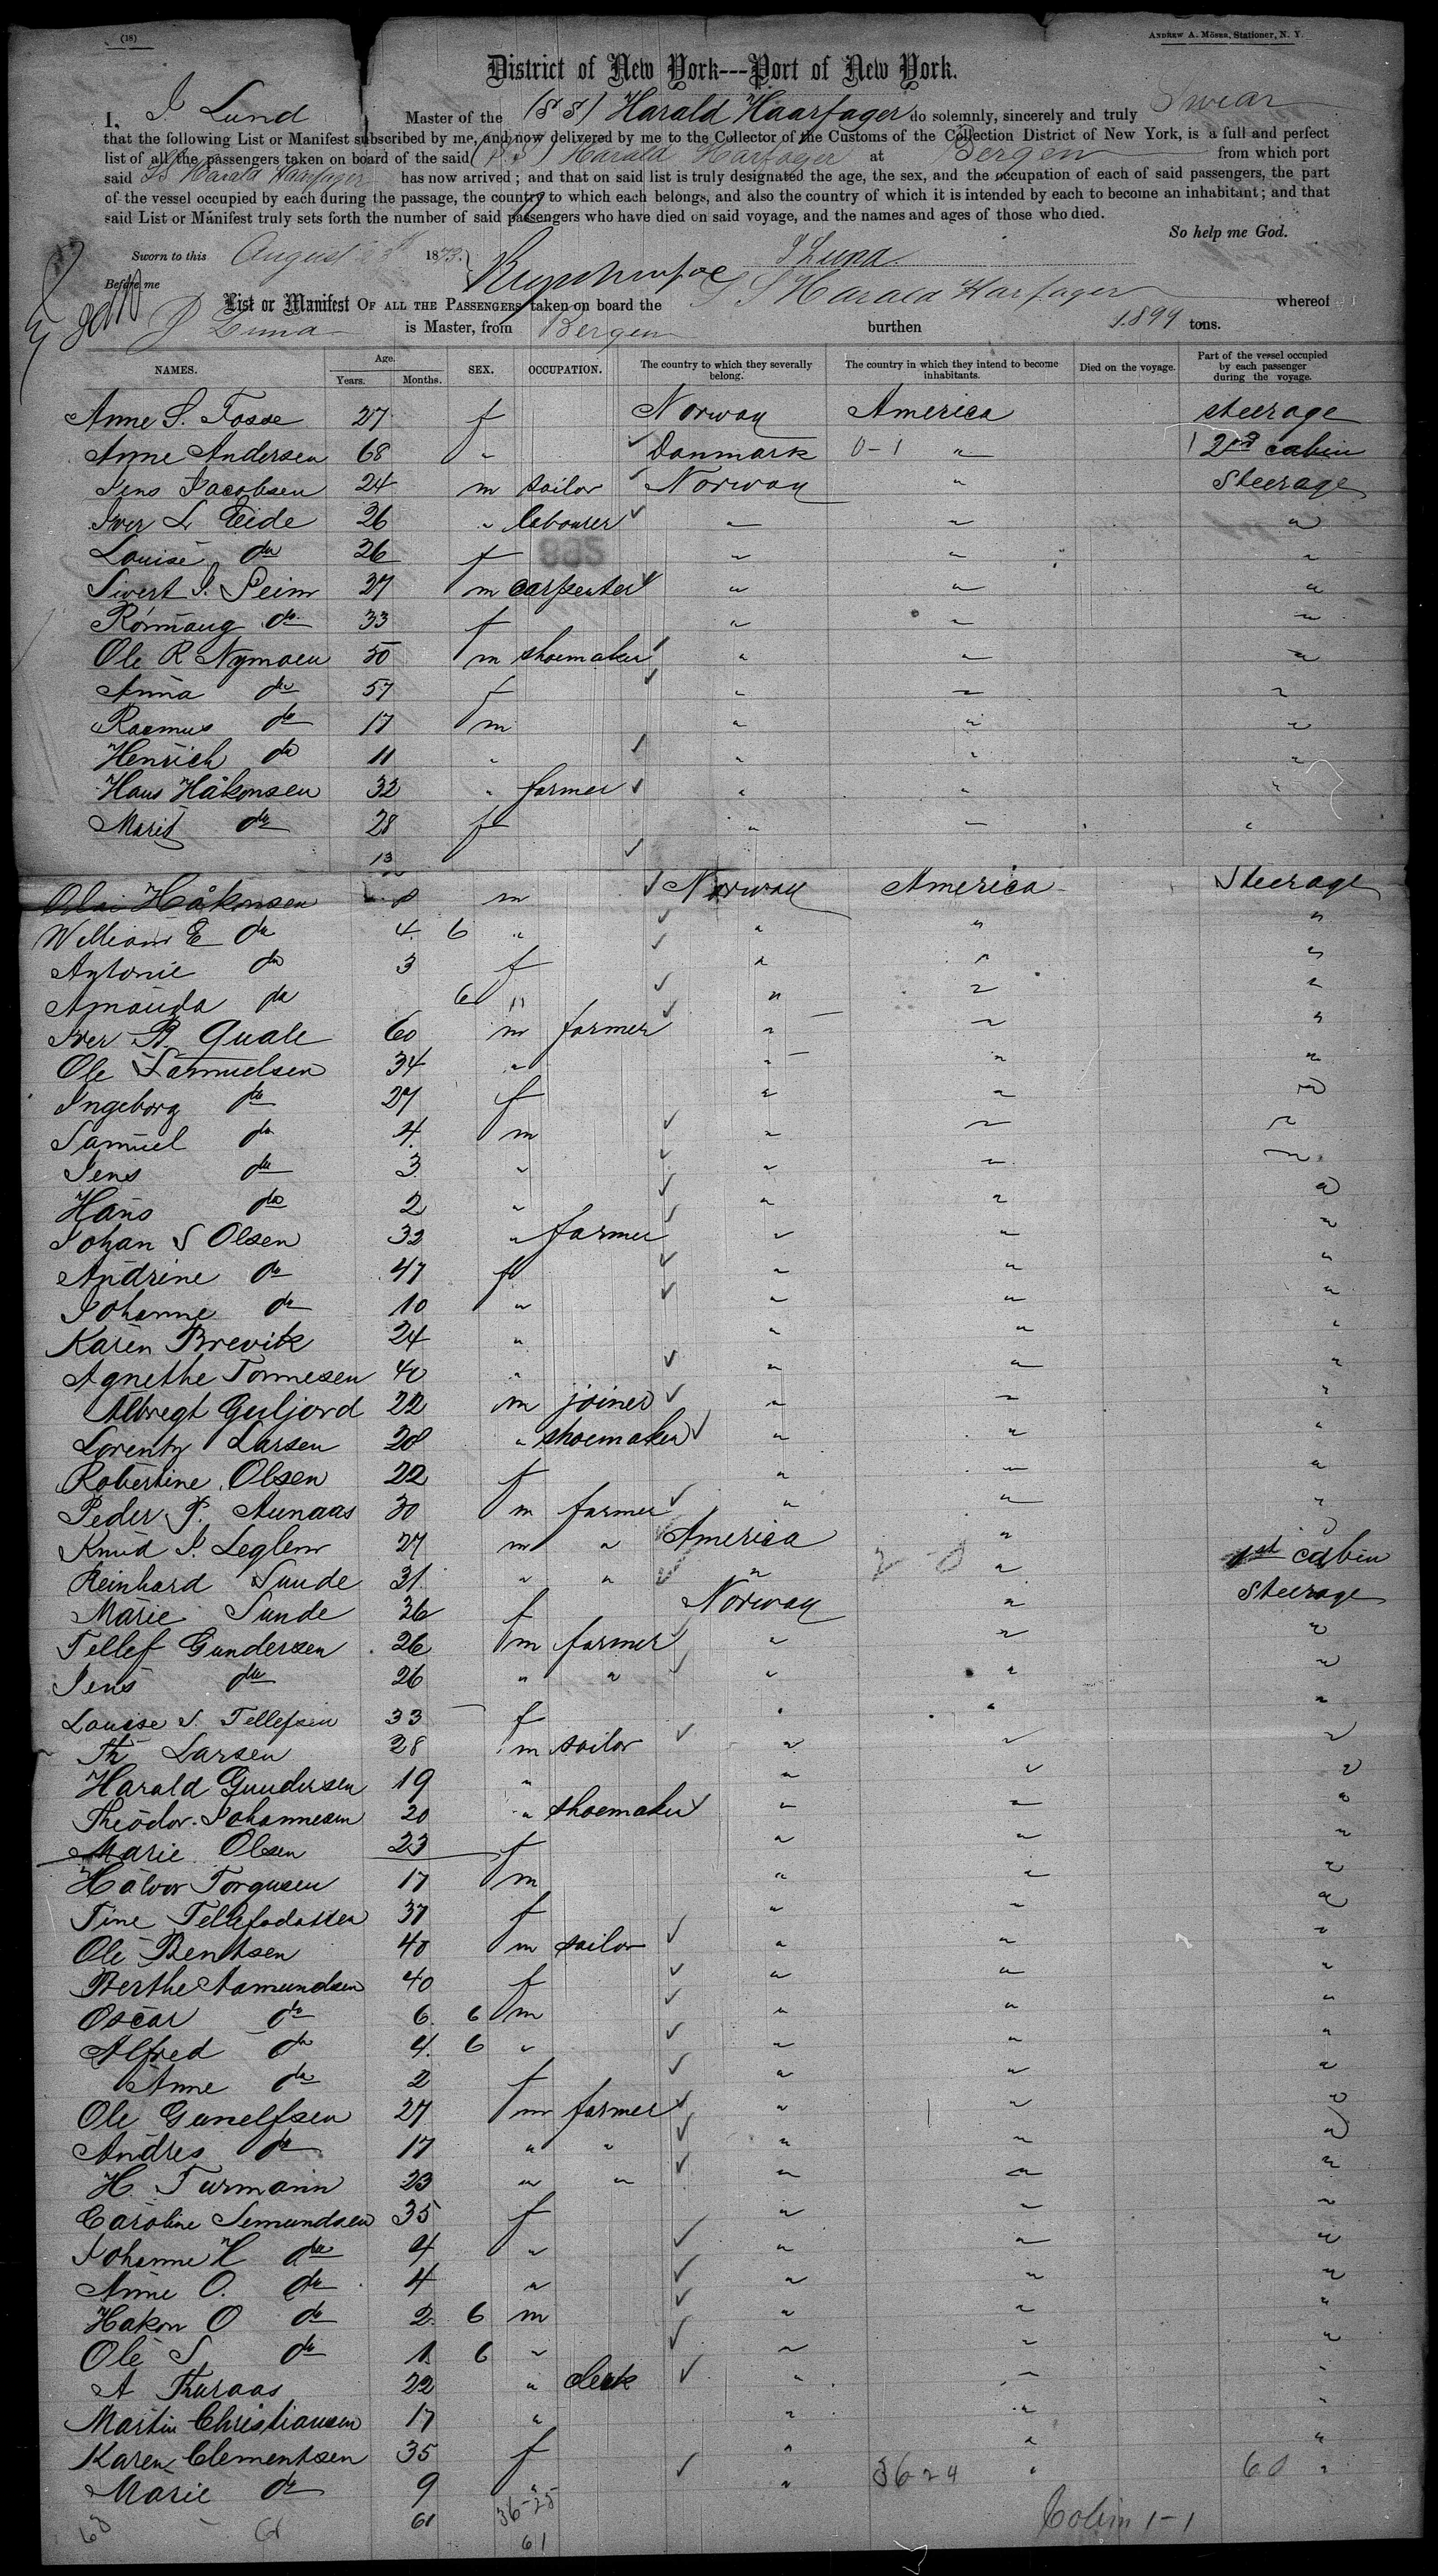 (18)
ANDREW A. MÖSER, STATIONER, N. Y.
District of New York---Port of New York.
I, J Lund Master of the (S S) Harald Haarfager do solemnly, sincerely and truly Swear
that the following List or Manifest subscribed by me, and now delivered by me to the Collector of the Customs of the Collection District of New York, is a full and perfect
list of all the passengers taken on board of the said (S S) Harald Harfager at Bergen from which port
said SS Harald Haarfager has now arrived; and that on said list is truly designated the age, the sex, and the occupation of each of said passengers, the part
of the vessel occupied by each during the passage, the country to which each belongs, and also the country of which it is intended by each to become an inhabitant; and that
said List or Manifest truly sets forth the number of said passengers who have died on said voyage, and the names and ages of those who died.
So help me God.
Sworn to this August 1873. J Lund
Before me
List or Manifest OF ALL THE PASSENGERS taken on board the S S Harald Harfager whereof
J Lund is Master, from Bergen burthen 1899 tons.
NAMES. Age. Years. Months. SEX. OCCUPATION. The country to which they severally belong. The country in which they intend to become inhabitants. Died on the voyage. Part of the vessel occupied by each passenger during the voyage.
Anne S. Fosse 27 f Norway America steerage
Anne Andersen 68 " Danmark 0-1 " 2nd cabin
Jens Jacobsen 24 m sailor Norway " Steerage
Iver L Eide 26 " labourer " " "
Louise do 26 f " " "
Sivert I. Seim 27 m carpenter " " "
Rønnaug do 33 f " " "
Ole R Nymoen 50 m shoemaker " " "
Anna do 57 f " " "
Rasmus do 17 m " " "
Henrich do 11 " " " "
Hans Håkonsen 32 " farmer " " "
Marit do 28 f " " "
13
Olai Håkonsen 8 m Norway America Steerage
William E do 4 6 " " " "
Antonie do 3 f " " "
Amanda do 6 " " " "
Iver B. Quale 60 m farmer " " "
Ole Samuelsen 34 " " " "
Ingeborg do 27 f " " "
Samuel do 4 m " " "
Jens do 3 " " " "
Hans do 2 " " " "
Johan S Olsen 32 " farmer " " "
Andrine do 47 f " " "
Johanne do 10 " " " "
Karen Brevik 24 " " " "
Agnethe Tonnesen 40 " " " "
Albregt Guljord 22 m joiner " " "
Lorentz Larsen 28 " shoemaker " " "
Robertine Olsen 22 f " " "
Peder P. Aunaas 30 m farmer " " "
Knud I. Leglem 27 m " America " "
Reinhard Sunde 31 " " " 2-0 " 1st cabin
Marie Sunde 36 f Norway " Steerage
Tellef Gundersen 26 m farmer " " "
Jens do 26 " " " " "
Louise S. Tellefsen 33 f " " "
Th Larsen 28 m sailor " " "
Harald Gundersen 19 " " " "
Theodor Johannesen 20 " shoemaker " " "
Marie Olsen 23 f " " "
Halvor Torgusen 17 m " " "
Tine Tellefsdatter 37 f " " "
Ole Bentsen 40 m sailor " " "
Berthe Aamundsen 40 f " " "
Oscar do 6 6 m " " "
Alfred do 4 6 " " " "
Anne do 2 f " " "
Ole Gunelfsen 27 m farmer " " "
Andres do 17 " " " " "
H. Turmann 23 " " " " "
Caroline Semundsen 35 f " " "
Johanne H do 9 " " " "
Anne O. do 4 " " " "
Hakon O do 2 6 m " " "
Ole S. do 1 6 " " " "
A Thuraas 22 " clerk " " "
Martin Christiansen 17 " " " "
Karen Clementsen 35 f " " "
Marie do 9 " " 36 24 " 60 "
61 36-25
61
Cabin 1-1